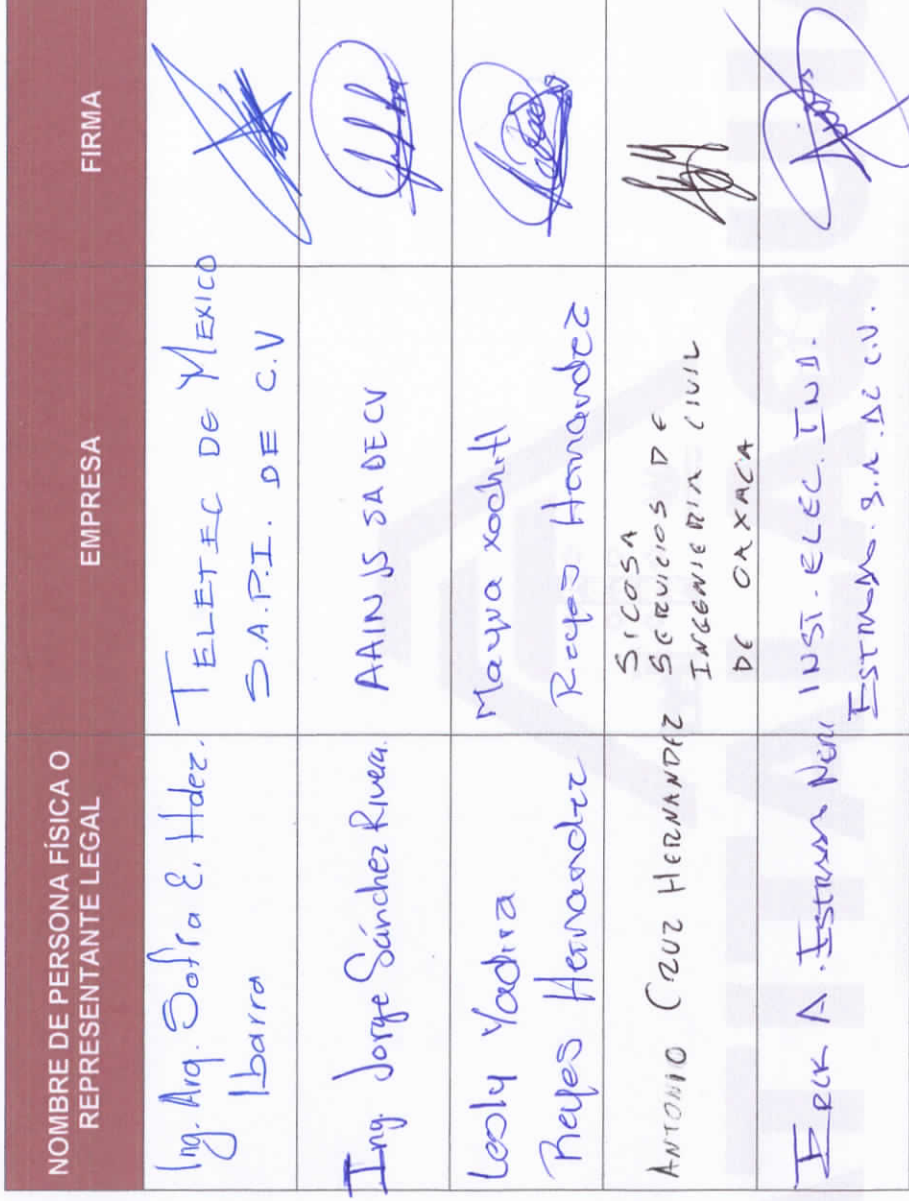 NOMBRE DE PERSONA FÍSICA O
REPRESENTANTE LEGAL
EMPRESA
FIRMA
Ing. Arq. Sofía E. Hdez.
Ibarra
TELETEC DE MEXICO
S.A.P.I. DE C.V
Ing. Jorge Sánchez Rivera.
AAINJS SA DE CV
Lesly Yadira
Reyes Hernandez
Mayua Xochitl
Reyes Hernandez
ANTONIO CRUZ HERNANDEZ
SICOSA
SERVICIOS DE
INGENIERIA CIVIL
DE OAXACA
A.
INST. ELEC. IND.
C.V.